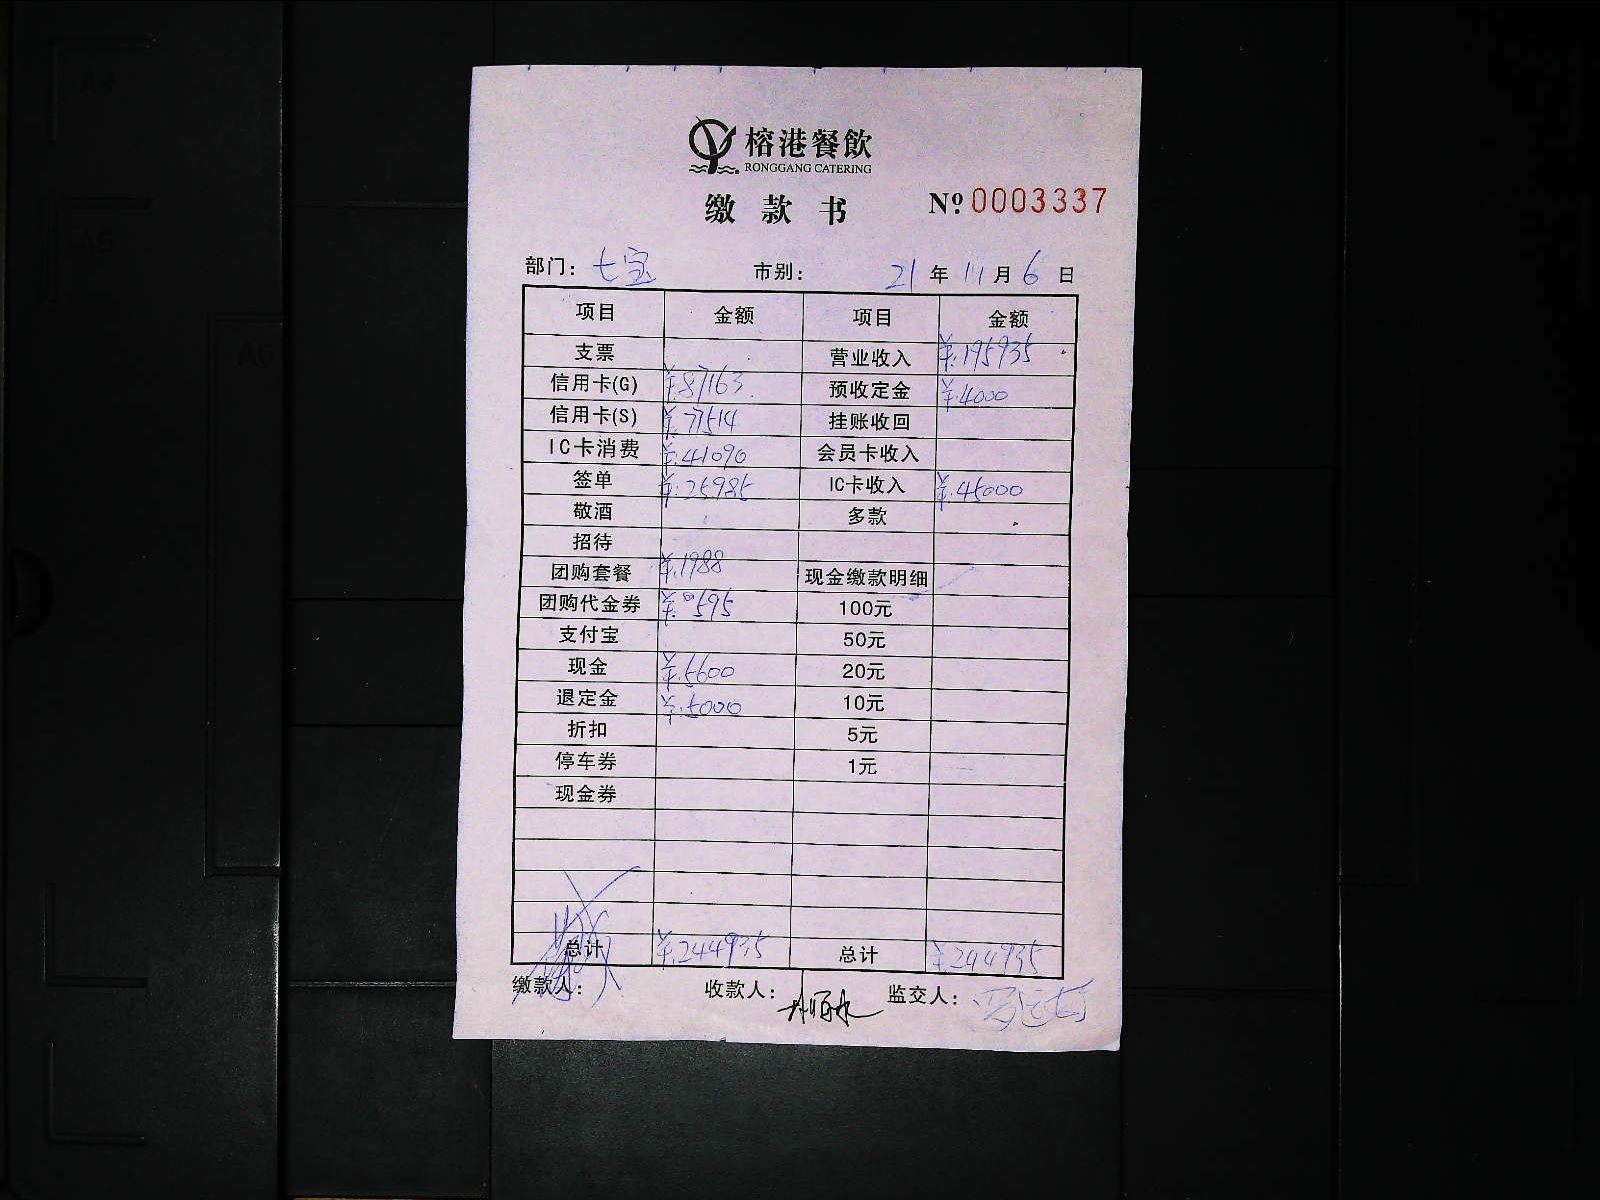 榕港餐飲
RONGGANG CATERING
缴款书 Nº 0003337
部门：七宝 市别： 21年11月6日
项目 金额 项目 金额
支票 营业收入 ¥.195935
信用卡(G) ¥.87163 预收定金 ¥.4000
信用卡(S) ¥.77514 挂账收回
IC卡消费 ¥.41090 会员卡收入
签单 ¥.25985 IC卡收入 ¥.45000
敬酒 多款
招待
团购套餐 ¥.1988 现金缴款明细
团购代金券 ¥.595 100元
支付宝 50元
现金 ¥.5600 20元
退定金 ¥.5000 10元
折扣 5元
停车券 1元
现金券
总计 ¥.244935 总计 ¥.244935
缴款人： 收款人： 监交人：